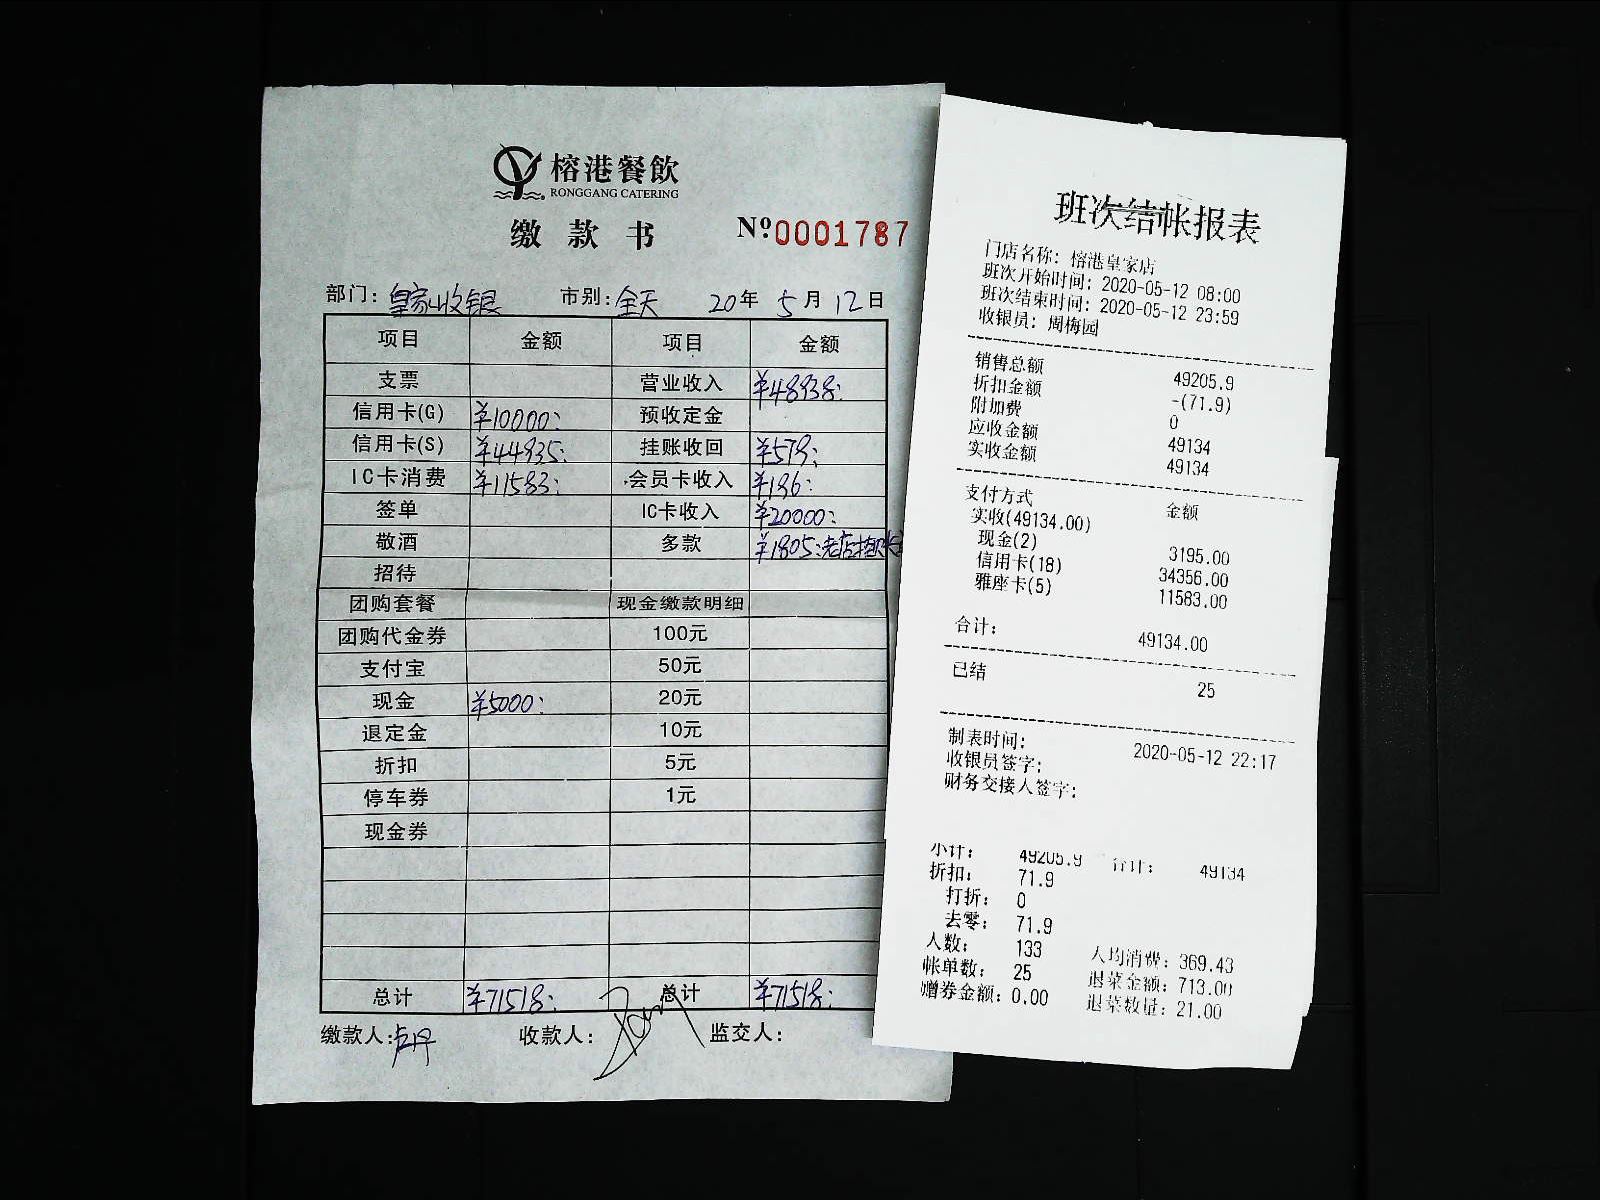 榕港餐飲
RONGGANG CATERING
缴款书 Nº0001787
部门：皇家收银 市别：全天 20年5月12日
项目 金额 项目 金额
支票 营业收入 ¥48938：
信用卡(G) ¥10000： 预收定金
信用卡(S) ¥44935： 挂账收回 ¥579：
IC卡消费 ¥11583： 会员卡收入 ¥196：
签单 IC卡收入 ¥20000：
敬酒 多款 ¥1805：老店挂账
招待
团购套餐 现金缴款明细
团购代金券 100元
支付宝 50元
现金 ¥5000： 20元
退定金 10元
折扣 5元
停车券 1元
现金券
总计 ¥71518： 总计 ¥71518：
缴款人：卢丹 收款人： 监交人：
班次结帐报表
门店名称：榕港皇家店
班次开始时间：2020-05-12 08:00
班次结束时间：2020-05-12 23:59
收银员：周梅园
销售总额 49205.9
折扣金额 -(71.9)
附加费 0
应收金额 49134
实收金额 49134
支付方式 金额
实收(49134.00)
现金(2) 3195.00
信用卡(18) 34356.00
雅座卡(5) 11583.00
合计： 49134.00
已结 25
制表时间： 2020-05-12 22:17
收银员签字：
财务交接人签字：
小计： 49205.9 合计： 49134
折扣： 71.9
打折： 0
去零： 71.9
人数： 133 人均消费：369.43
帐单数： 25 退菜金额：713.00
赠券金额：0.00 退菜数量：21.00